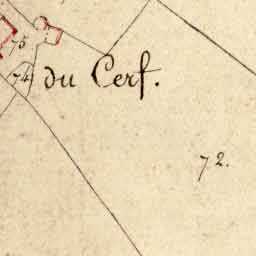 75
74
du Cerf.
72.